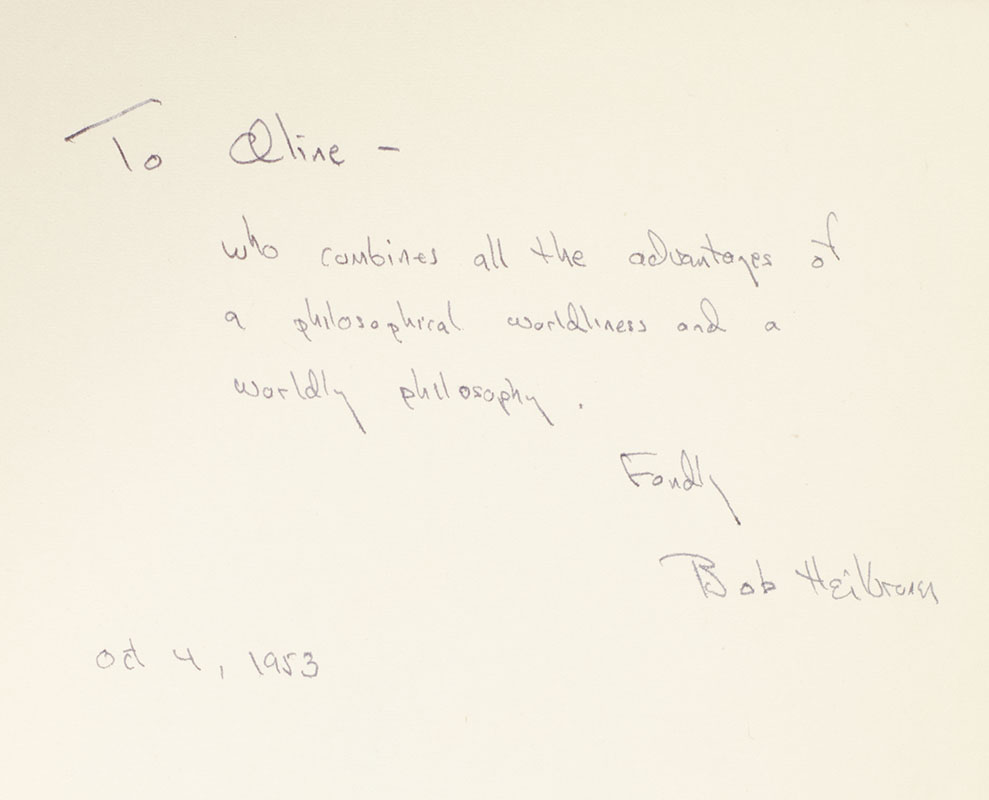 To Aline -
who combines all the advantages of
a philosophical worldliness and a
worldly philosophy.
Fondly
Bob Heilbroner
Oct 4, 1953